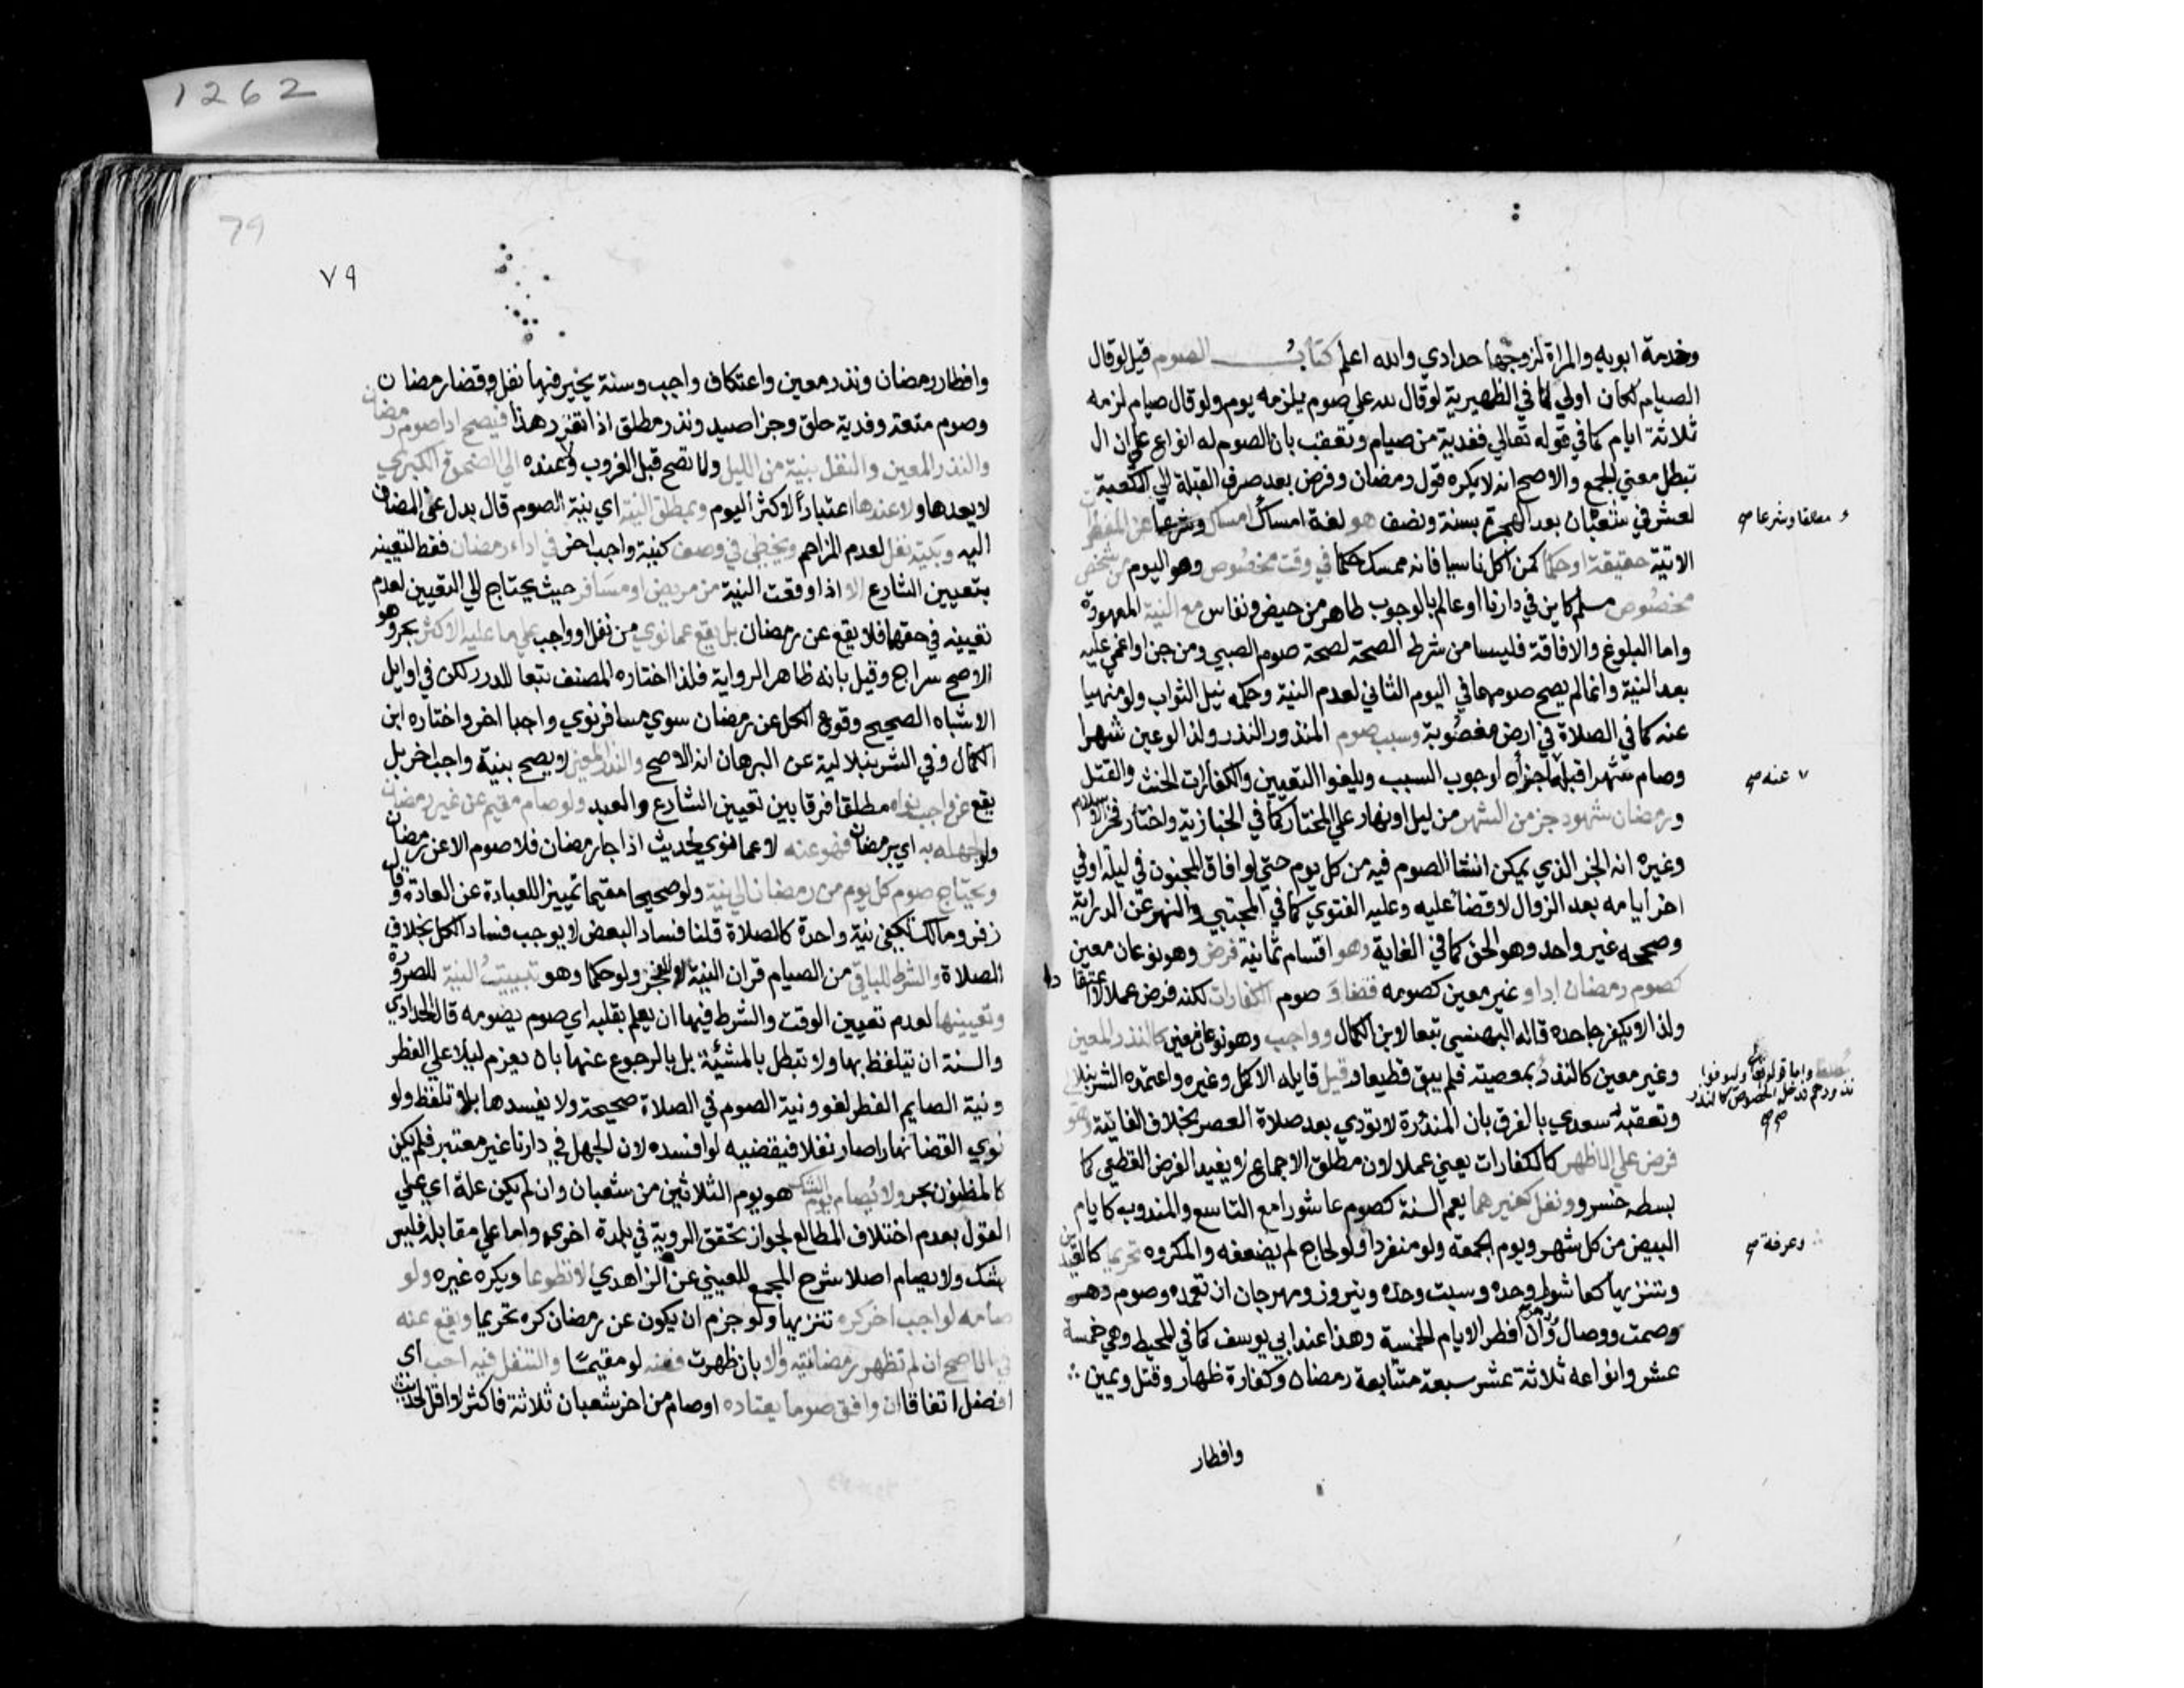 وخدمة ابويه والمراة لزوجها حدادي والله اعلم كتاب الصوم قيل لوقال
الصيام لكان اولي لما في الظهيرية لوقال لله علي صوم يلزمه يوم ولو قال صيام لزمه
ثلاثة ايام كما في قوله تعالي ففدية من صيام وتعقب بان الصوم له انواع علي ان ال
تبطل معني الجمع والاصح انه لا يكره قول رمضان وفرض بعد صرف القبلة الي الكعبة
لعشر في شعبان بعد الهجرة بسنة ونصف هو لغة امساك وشرعا امساك عن المفطرات
الاتية حقيقة او حكما كمن اكل ناسيا فانه ممسك حكما في وقت مخصوص وهو اليوم من شخص
مخصوص مسلم كاين في دارنا او عالم بالوجوب طاهر من حيض ونفاس مع النية المعهودة
واما البلوغ والافاقة فليسا من شرط الصحة لصحة صوم الصبي ومن جن او اغمي عليه
بعد النية وانما لم يصح صومهما في اليوم الثاني لعدم النية وحكمه نيل الثواب ولو منهيا
عنه كما في الصلاة في ارض مغصوبة وسبب صوم المنذور النذر ولذا لوعين شهرا
وصام شهرا قبله اجزاه لوجوب السبب ويلغوا التعيين والكفارات الحنث والقتل
ورمضان شهود جز من الشهر من ليل او نهار علي المختار كما في الخبازية واختار فخر الاسلام
وغيره انه الجز الذي يمكن انشا الصوم فيه من كل يوم حتي لو افاق المجنون في ليلة اوفي
اخر ايامه بعد الزوال لا قضا عليه وعليه الفتوي كما في المجتبي والنهر عن الدراية
وصححه غير واحد وهو الحق كما في الغاية وهو اقسام ثمانية فرض وهو نوعان معين
كصوم رمضان ادا و غير معين كصومه قضا و صوم الكفارات لكنه فرض عملا لا اعتقادا
ولذا لا يكفر جاحده قاله البهنسي تبعا لابن الكمال وواجب وهو نوعان معين كالنذر المعين
وغير معين كالنذر بمعصيته فلم يبق قطعيا وقيل قايله الاكمل وغيره واعتمده الشرنبلا
وتعقبه سعدي بالفرق بان المنذورة لا تودي بعد صلاة العصر بخلاف الفايتة وهو
فرض علي الاظهر كالكفارات يعني عملا لان مطلق الاجماع لا يفيد الفرض القطعي كما
بسطه خسرو ونفل كغيرهما يعم السنة كصوم عاشورا مع التاسع والمندوب كايام
البيض من كل شهر ويوم الجمعة ولو منفردا ولو لحاج لم يضعفه والمكروه تحريما كالعيدين
وتنزيها كعاشورا وحده وسبت وحده ونيروز ومهرجان ان تعمده وصوم دهر
وصمت ووصال وان افطر الايام الخمسة وهذا عند ابي يوسف كما في المحيط وهي خمسة
عشر وانواعه ثلاثة عشر سبعة متتابعة رمضان وكفارة ظهار وقتل ويمين
وافطار
مطلقا وشرعا صح
عنه صح
واما قوله تعالي وليوفوا
نذورهم فدخله الخصوص كالنذر
صح
وعرفة صح
1262
79
٧٩
وافطار رمضان ونذر معين واعتكاف واجب وستة يخير فيها نفل وقضا رمضان
وصوم متعة وفدية حلق وجزا صيد ونذر مطلق اذا تقرر هذا فيصح ادا صوم رمضان
والنذر المعين والنفل بنية من الليل ولا تصح قبل الغروب ولا عنده الي الضحوة الكبري
لا بعدها ولا عندها اعتبارا لاكثر اليوم وبمطلق النية اي نية الصوم قال بدل عن المضاف
اليه وبنية نفل لعدم المزاحم ويخطي في وصف كنية واجب اخر في اداء رمضان فقط لتعينه
بتعيين الشارع الا اذا وقعت النية من مريض او مسافر حيث يحتاج الي التعيين لعدم
تعيينه في حقهما فلا يقع عن رمضان بل يقع عما نوي من نفل او واجب علي ما عليه الاكثر بحر وهو
الاصح سراج وقيل بانه ظاهر الرواية فلذا اختاره المصنف تبعا للدرر لكن في اوايل
الاشباه الصحيح وقوع الكل عن رمضان سوي مسافر نوي واجبا اخر واختاره ابن
الكمال وفي الشرنبلالية عن البرهان انه الاصح والنذر المعين لا يصح بنية واجب اخر بل
يقع عن واجب نواه مطلقا فرقا بين تعيين الشارع والعبد ولو صام مقيم عن غير رمضان
ولو لجهله به اي برمضان فهو عنه لا عما نوي لحديث اذا جا رمضان فلا صوم الا عن رمضان
ويحتاج صوم كل يوم من رمضان الي نية ولو صحيحا مقيما تمييزا للعبادة عن العادة وقال
زفر ومالك تكفي نية واحدة كالصلاة قلنا فساد البعض لا يوجب فساد الكل بخلاف
الصلاة والشرط للباقي من الصيام قران النية للفجر ولو حكما وهو تبييت النية للضرورة
وتعيينها لعدم تعيين الوقت والشرط فيها ان يعلم بقلبه اي صوم يصومه قال الحدادي
والسنة ان تيلفظ بها ولا تبطل بالمشئية بل بالرجوع عنها بان يعزم ليلا علي الفطر
ونية الصايم الفطر لغو ونية الصوم في الصلاة صحيحة ولا يفسدها بلا تلفظ ولو
نوي القضا نهارا صار نفلا فيقضيه لو افسده لان الجهل في دارنا غير معتبر فلم يكن
كالمظنون بحر ولا يصام يوم الشك هو يوم الثلاثين من شعبان وان لم يكن علة اي علي
القول بعدم اختلاف المطالع لجواز تحقق الروية في بلدة اخري واما علي مقابله فليس
بشك ولا يصام اصلا شرح المجمع للعيني عن الزاهدي الا تطوعا ويكره غيره ولو
صامه لواجب اخر كره تنزيها ولو جزم ان يكون عن رمضان كره تحريما ويقع عنه
في الاصح ان لم تظهر رمضانيته والا بان ظهرت فعنه لو مقيما والتنفل فيه احب اي
افضل اتفاقا ان وافق صوما يعتاده او صام من اخر شعبان ثلاثة فاكثر لا اقل لحديث